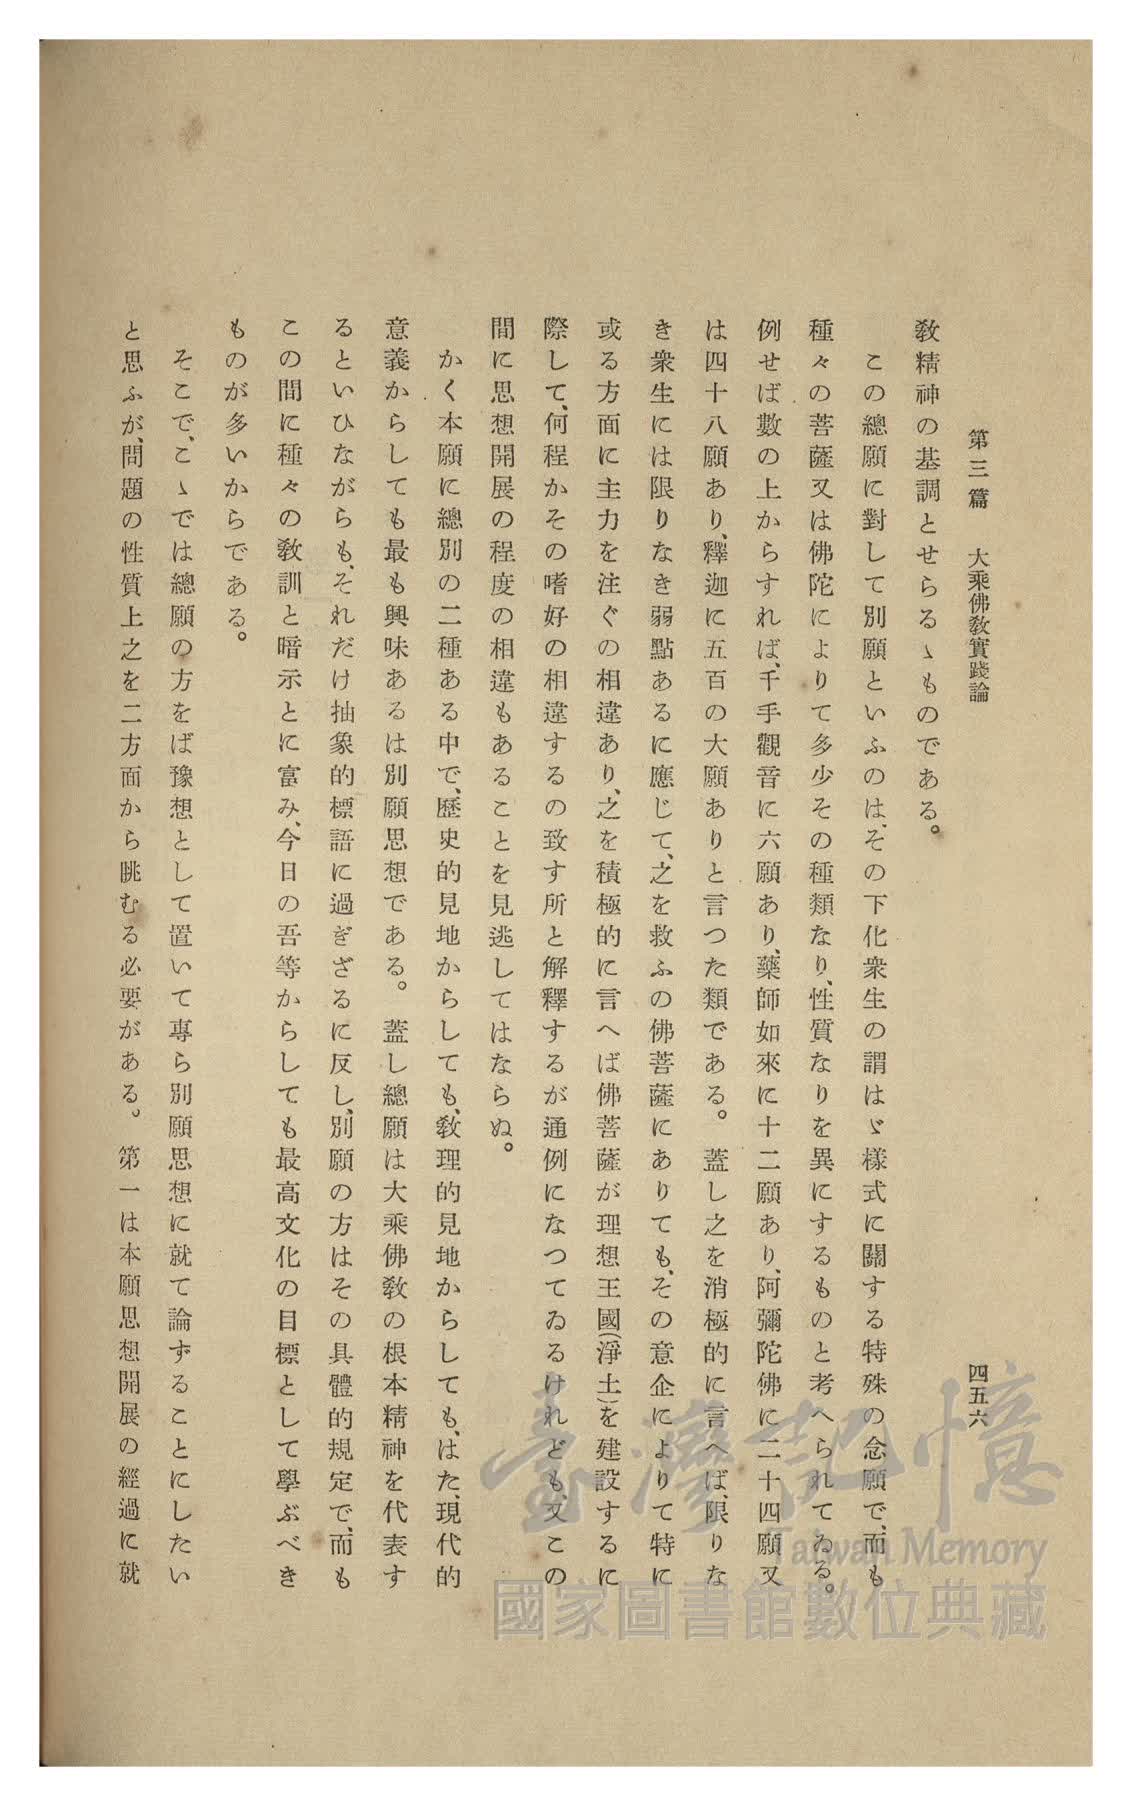 第三篇　大乘佛敎實踐論
四五六
敎精神の基調とせらるゝものである。
この總願に對して別願といふのは、その下化衆生の謂はゞ樣式に關する特殊の念願で、而も
種々の菩薩又は佛陀によりて多少その種類なり、性質なりを異にするものと考へられてゐる。
例せば數の上からすれば、千手觀音に六願あり、藥師如來に十二願あり、阿彌陀佛に二十四願又
は四十八願あり、釋迦に五百の大願ありと言つた類である。蓋し之を消極的に言へば、限りな
き衆生には限りなき弱點あるに應じて、之を救ふの佛菩薩にありても、その意企によりて特に
或る方面に主力を注ぐの相違あり、之を積極的に言へば佛菩薩が理想王國(淨土)を建設するに
際して、何程かその嗜好の相違するの致す所と解釋するが通例になつてゐるけれども、又この
間に思想開展の程度の相違もあることを見逃してはならぬ。
かく本願に總別の二種ある中で、歷史的見地からしても、敎理的見地からしても、はた、現代的
意義からしても最も興味あるは別願思想である。蓋し總願は大乘佛敎の根本精神を代表す
るといひながらも、それだけ抽象的標語に過ぎざるに反し、別願の方はその具體的規定で、而も
この間に種々の敎訓と暗示とに富み、今日の吾等からしても最高文化の目標として學ぶべき
ものが多いからである。
そこで、こゝでは總願の方をば豫想として置いて專ら別願思想に就て論ずることにしたい
と思ふが、問題の性質上之を二方面から眺むる必要がある。第一は本願思想開展の經過に就
臺灣記憶
Taiwan Memory
國家圖書館數位典藏